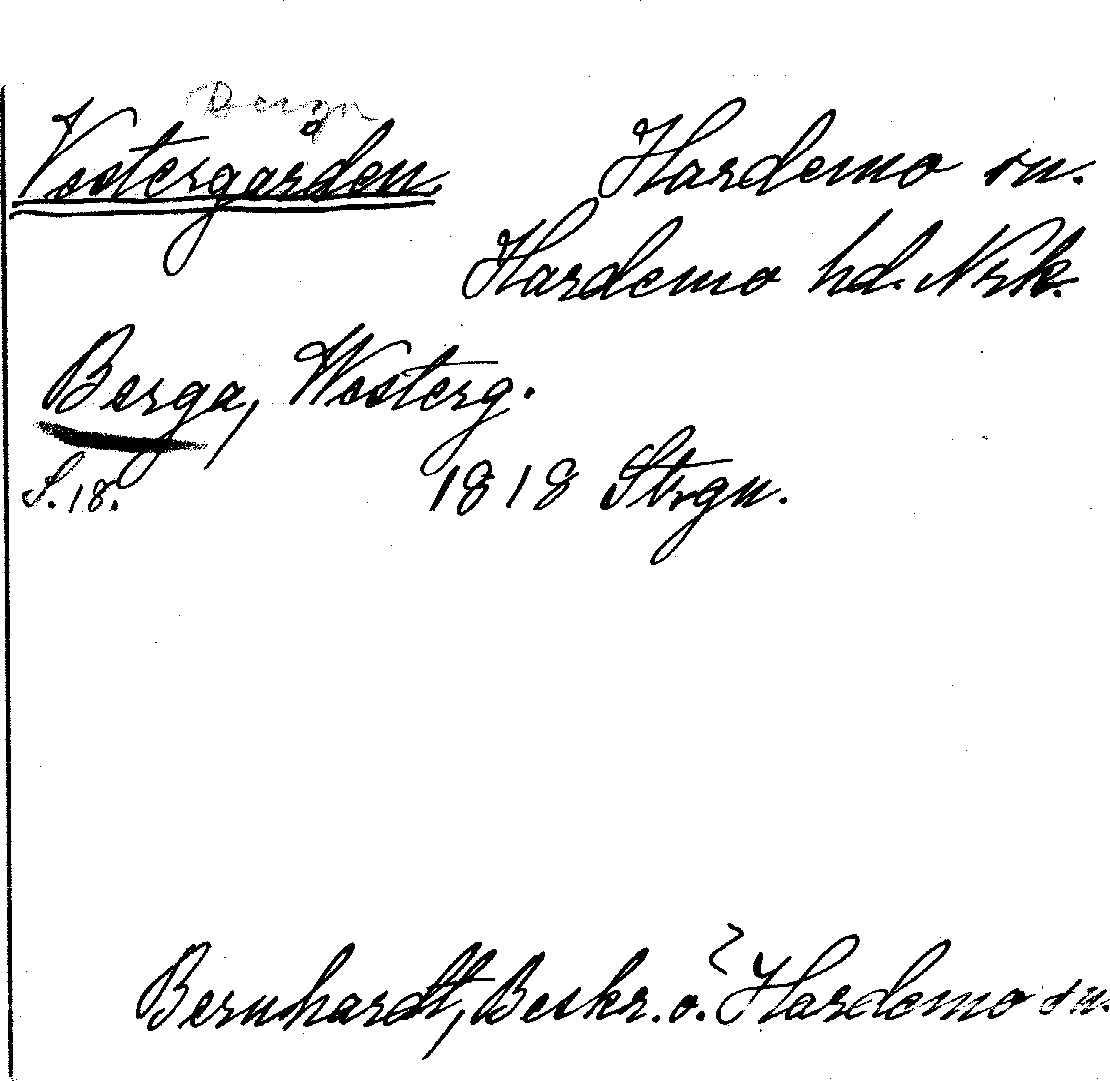 Berga
Vestergården. Hardemo sn.
Hardemo hd. Nrk.
Berga, Westerg.
S. 18. 1818 Strgn.
Bernhardt, Beskr. ö. Hardemo sn.